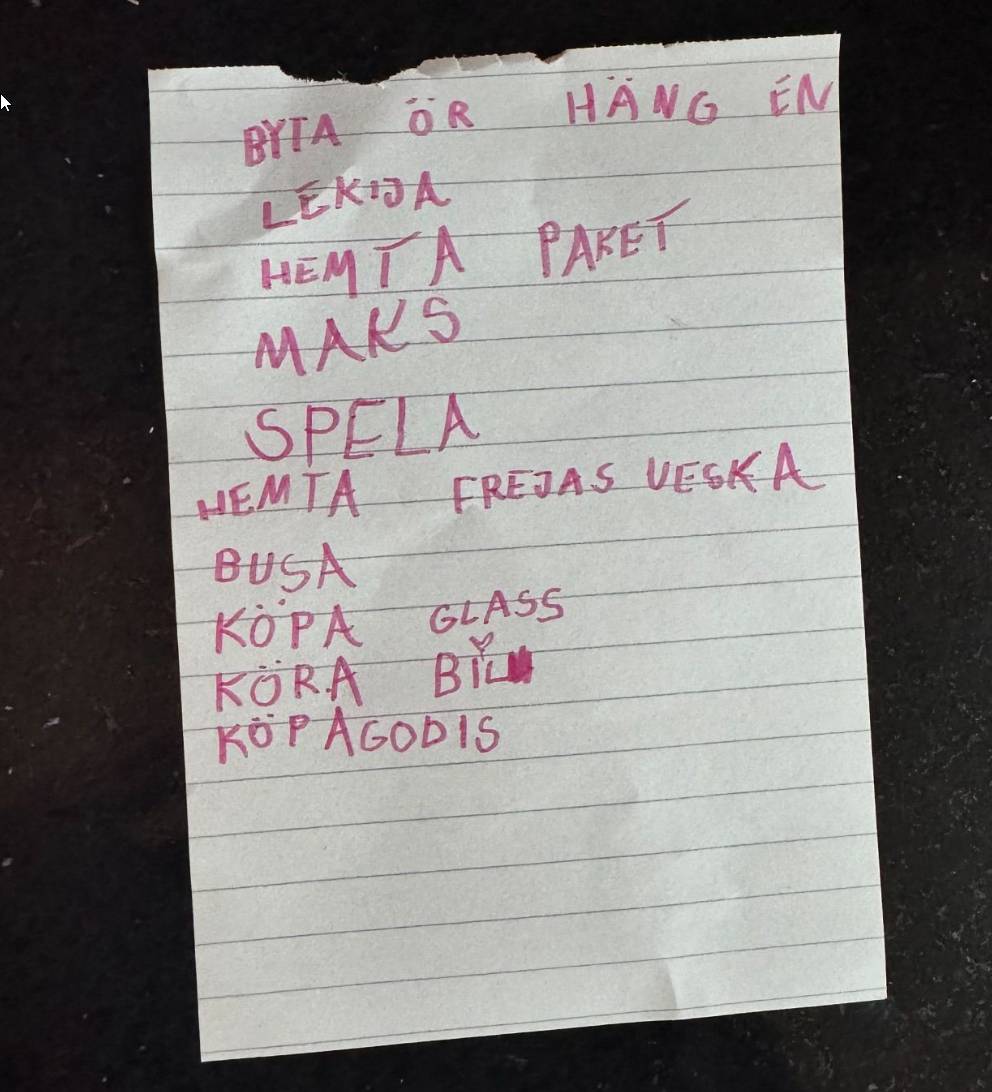 BYTA ÖR HÄNG EN
LEKIJA
HEMTA PAKET
MAKS
SPELA
HEMTA FREJAS VESKA
BUSA
KÖPA GLASS
KÖRA BIL
KÖPAGODIS